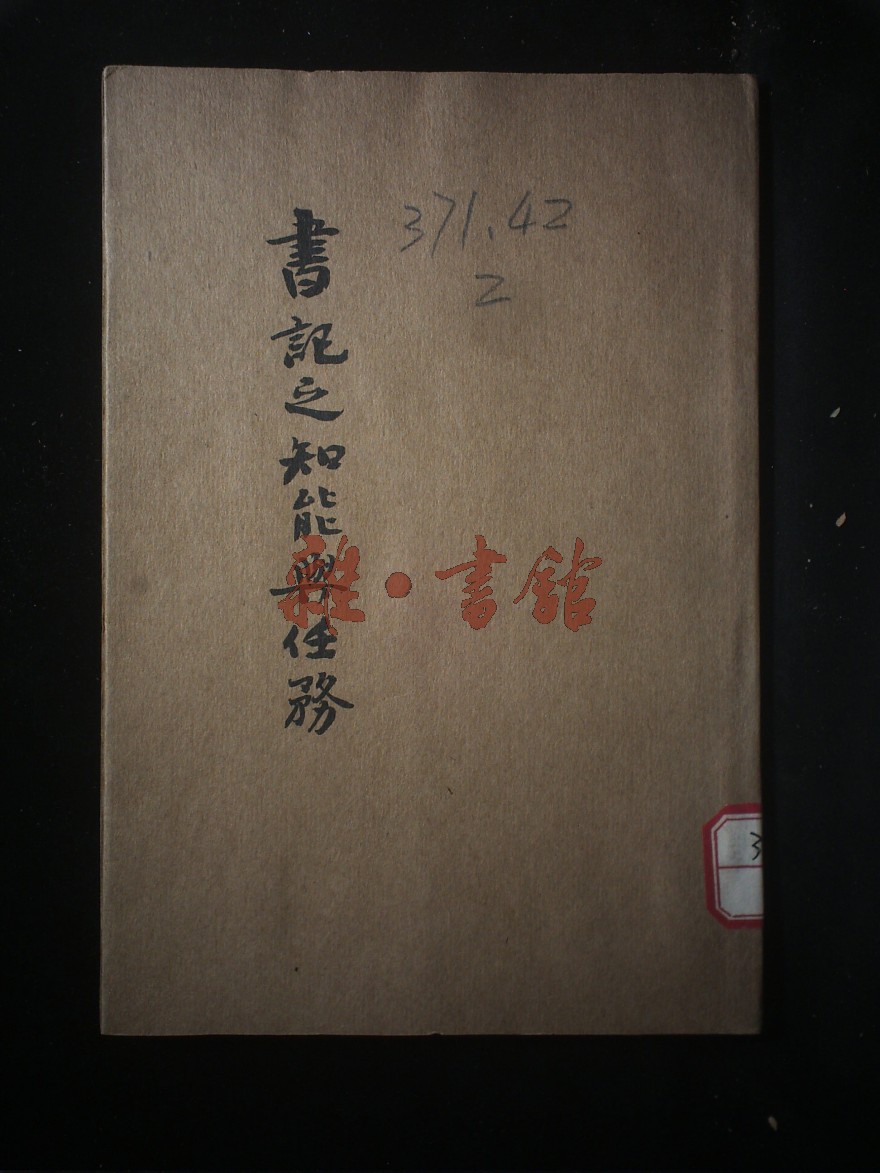 371.42
2
書記之知能與任務
雜·書館
3